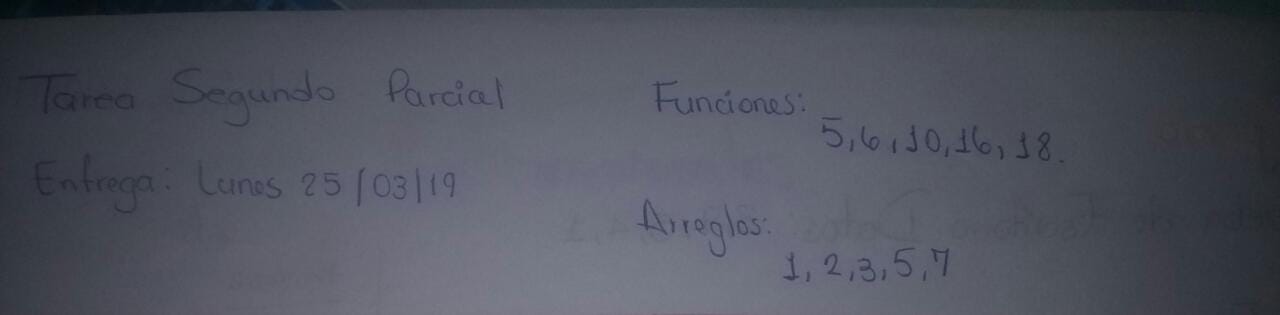 Tarea Segundo Parcial
Entrega: Lunes 25/03/19
Funciones:
5,6,10,16,18.
Arreglos:
1,2,3,5,7